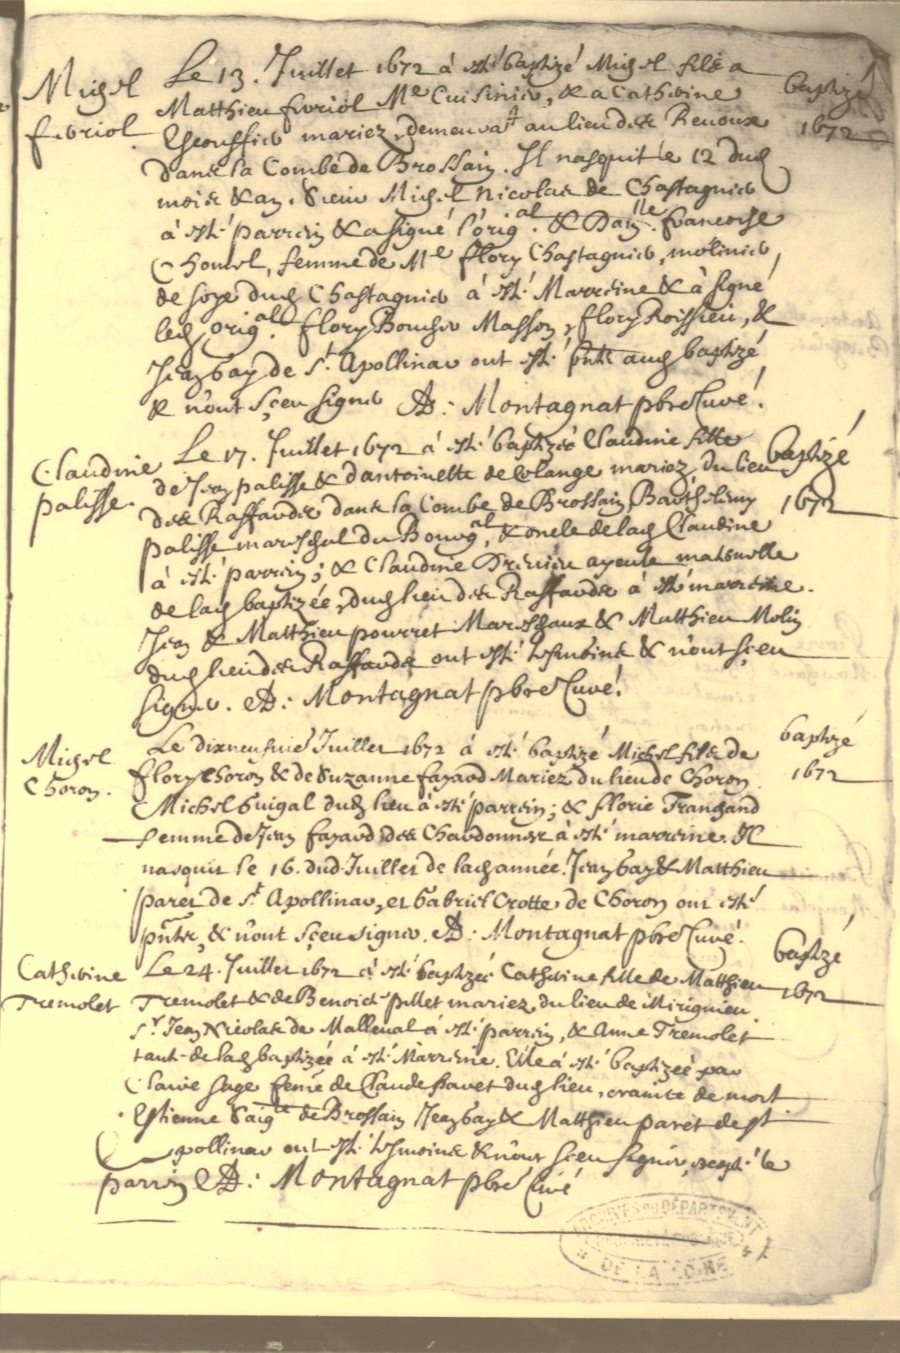 Michel
fivriol.
Le 13. Juillet 1672 à esté baptizé Michel fils a
Matthieu fivriol Me Cuisinier, & a Catherine
Escoussier mariez, demeurat au lieu des Renoux
dans la Combe de Brossain. Il nasquit le 12 dud
mois & an. Sieur Michel Nicolas de Chastagnier
à esté parrein & a signé l'orig.al & Dam.lle francoise
Chomel, femme de Me flory Chastagnier, molinier
de soye dud Chastagnier à esté Marreine & à signé
led orig.al flory Boucher Masson, flory Roissieu, &
Jean bay de St. Apollinar ont esté pnts aud baptizé
& n'ont sçeu signer Montagnat pbre Curé.
baptizé
1672
Claudine
palisse.
Le 17. Juillet 1672 à esté baptizée Claudine fille
de Jean palisse & d'antoinette de Colange mariez, du lieu
des Raffardz dans la Combe de Brossain, Barthelemy
palisse mareschal du Bourg al, & oncle de lad Claudine
à esté parrein; & Claudine ayeule maternelle
de lad baptizée, dud lieu des Raffardz à esté marreine.
Jean & Matthieu pourret Mareschaux & Matthieu Molin
dud lieu des Raffardz ont esté tesmoins & n'ont sçeu
signer. Montagnat pbre Curé.
baptizé
1672
Michel
Choron.
Le dixneufvie Juillet 1672 à esté baptizé Michel fils de
flory Choron & de Suzanne fayard Mariez du lieu de Choron
Michel Guigal dud lieu à esté parrein; & florie Franchand
femme de Jean fayard des Chardonner à esté marreine. Il
nasquit le 16. dud Juillet de lad année. Jean bay & Matthieu
paret de St Apollinar, et Gabriel Crotte de Choron ont esté
pnts, & n'ont sçeu signer. Montagnat pbre Curé.
baptizé
1672
Catherine
Tremolet
Le 24. Juillet 1672 à esté baptizée Catherine fille de Matthieu
Tremolet & de Benoite pillet mariez, du lieu de Mirignieu.
Sr Jean Nicolas de Malleval à esté parrein, & Anne Tremolet
tante de lad baptizée à esté Marreine. Elle à esté baptizée par
Claire sage feme de Claude favet dud lieu, crainte de mort
Estienne de Brossain Jean bay & Matthieu paret de St
Apollinar ont esté tesmoins & n'ont sçeu signer, excepté le
parrein Montagnat pbre Curé
baptizé
1672
ARCHIVES DU DÉPARTEMENT
DE LA LOIRE